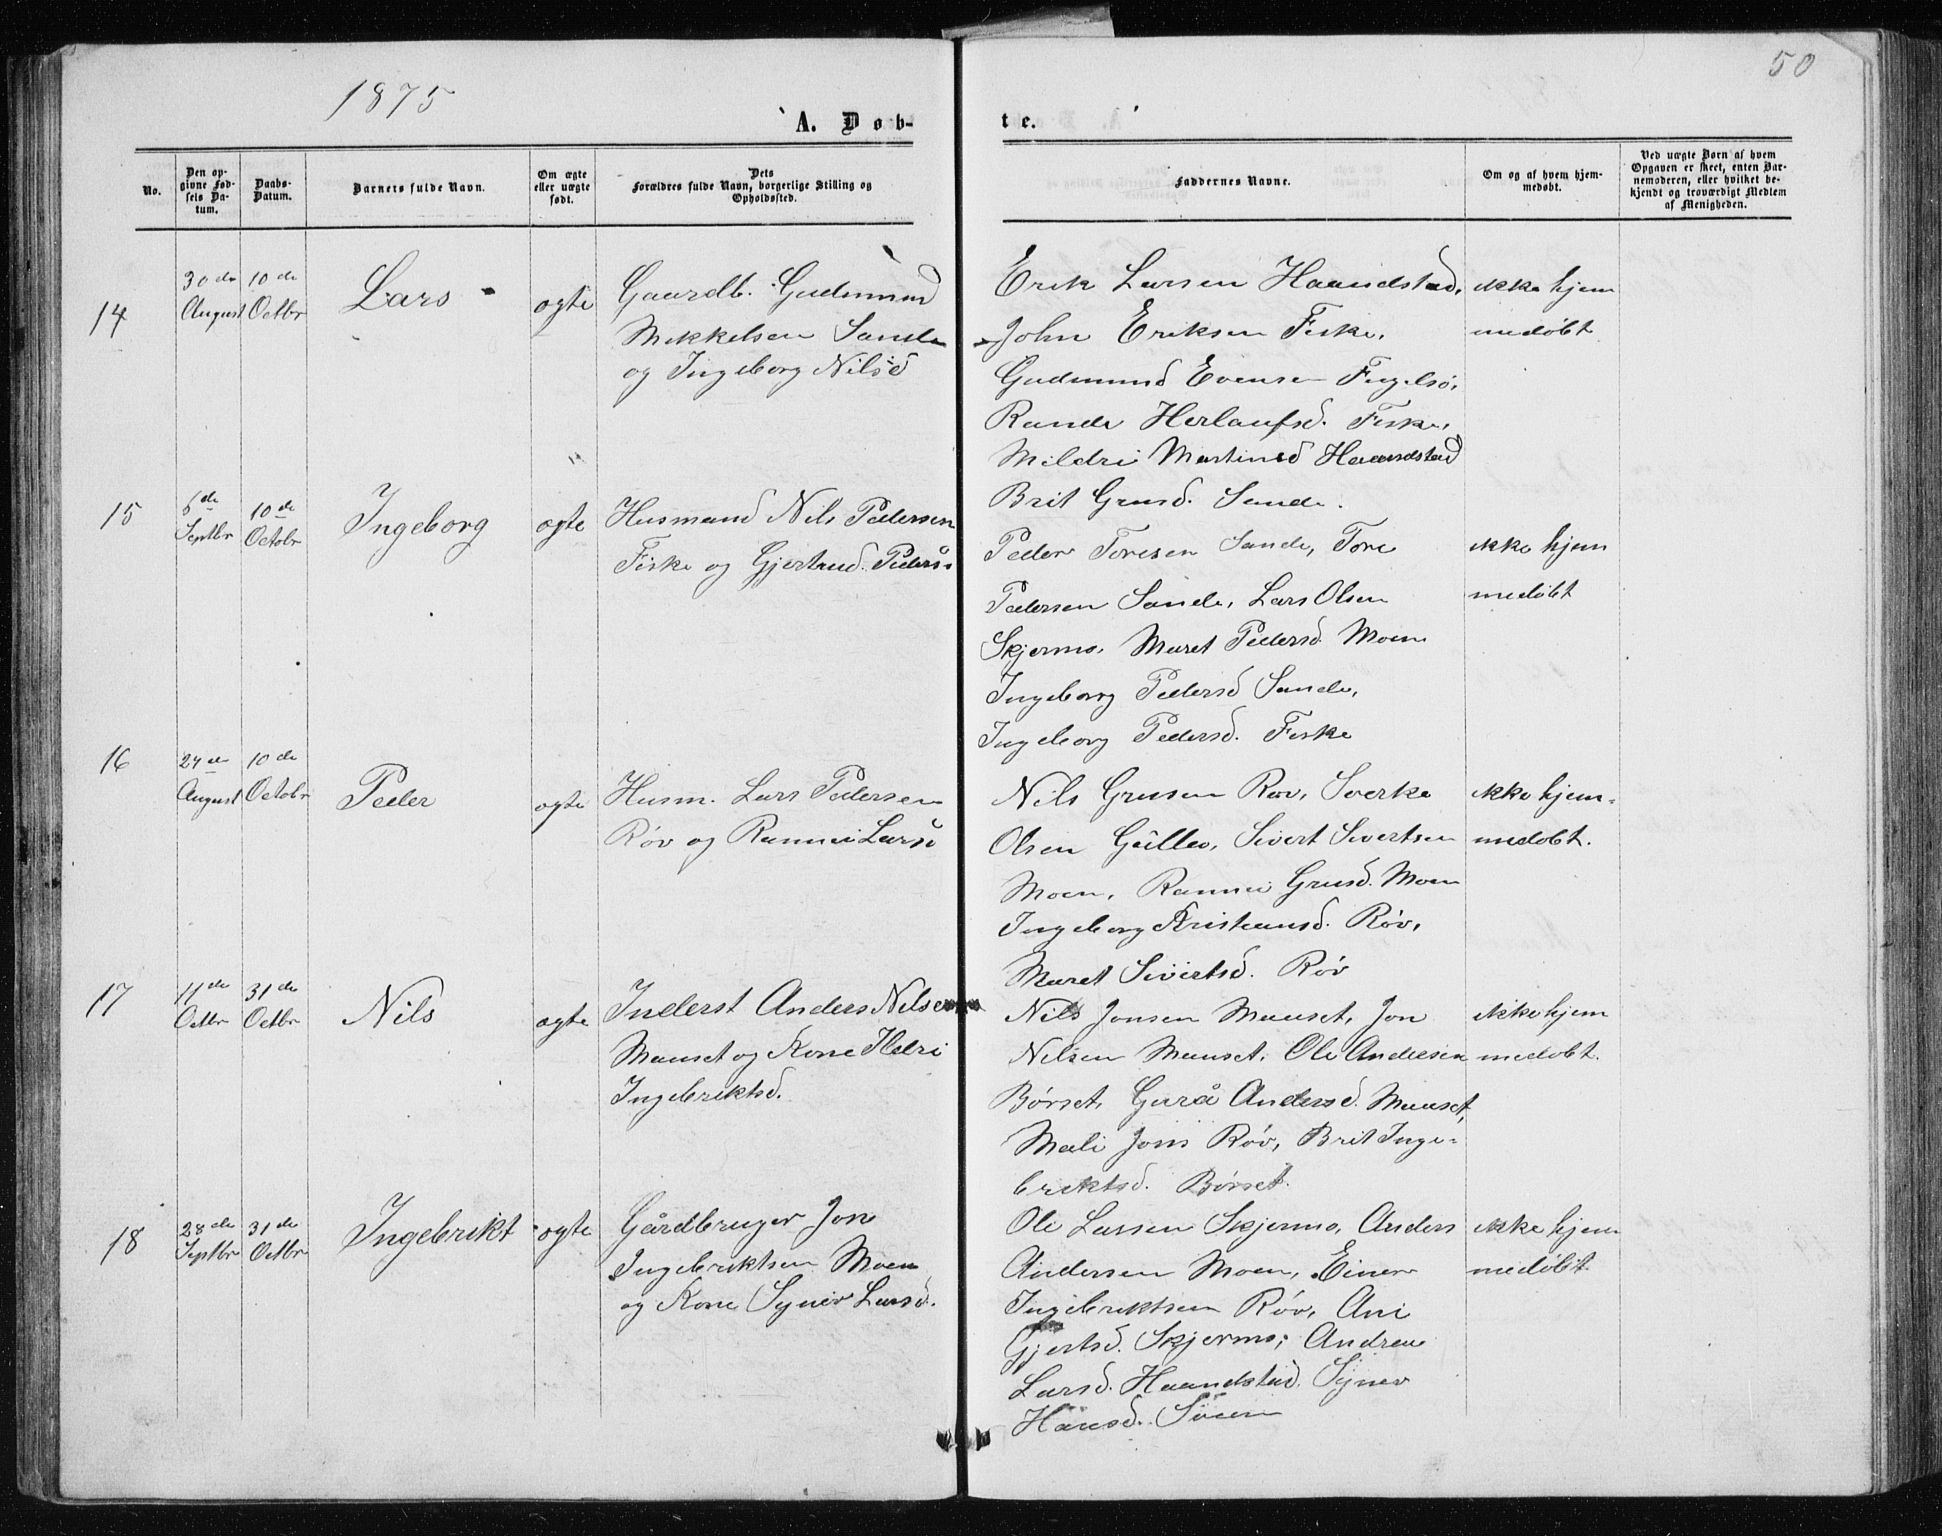 1875
50
A. Døb-
te.
No.
Den op-
givne Fød-
sels Da-
tum.
Daabs-
Datum.
Barnets fulde Navn.
Om ægte
eller uægte
født.
Dets
Forældres fulde Navn, borgerlige Stilling og
Opholdssted.
Faddernes Navne.
Om og af hvem hjem-
medøbt.
Ved uægte Børn af hvem
Opgaven er skeet, enten Bar-
nemoderen, eller hvilket be-
kjendt og troværdigt Medlem
af Menigheden.
14
30 de
August
10 de
Octbr
Lars
ægte
Gaardb. Gudmund
Mikkelsen Sande
og Ingeborg Nilsd
Erik Larsen Haandstad,
John Eriksen Fiske,
Gudmund Evensen Fugelsø,
Rande Herlaufsd. Fiske,
Mildri Martinsd Haandstad
Brit Grusd. Sande.
ikke hjem
medøbt.
15
6 de
Septbr
10 de
Octobr
Ingeborg
ægte
Husmand Nils Pedersen
Fiske og Gjertrud Peders.
Peder Toresen Sande, Tore
Pedersen Sande, Lars Olsen
Skjermo, Maret Pedersd. Moen
Ingeborg Pedersd Sande,
Ingeborg Pedersd. Fiske
ikke hjem
medøbt
16
24 de
August
10 de
Octobr
Peder
ægte
Husm. Lars Pedersen
Røv og Rannei Larsd
Nils Grusen Røv, Sverke
Olsen Gulla, Sivert Sivertsen
Moen, Rannei Grusd. Moen
Ingeborg Kristiansd. Røv,
Maret Sivertsd. Røv
ikke hjem-
medøbt.
17
11 de
Octbr
31 de
Octbr
Nils
ægte
Inderst Anders Nilsen
Mauset og Kone Ildri
Ingebriktsd.
Nils Jonsen Mauset, Jon
Nilsen Mauset, Ole Andersen
Børset, Gurå Andersd. Mauset,
Mali Jons Røv, Brit Inge-
briktsd. Børset.
ikke hjem
medøbt.
18
28 de
Septbr
31 de
Octbr
Ingebrikt
ægte
Gårdbruger Jon
Ingebriktsen Moen
og Kone Synev Larsd.
Ole Larsen Skjermo, Anders
Andersen Moen, Einer
Ingebriktsen Røv, Ani
Gjertsd. Skjermo, Andrea
Larsd. Haandstad. Synev
Hansd.
ikke hjem
medøbt